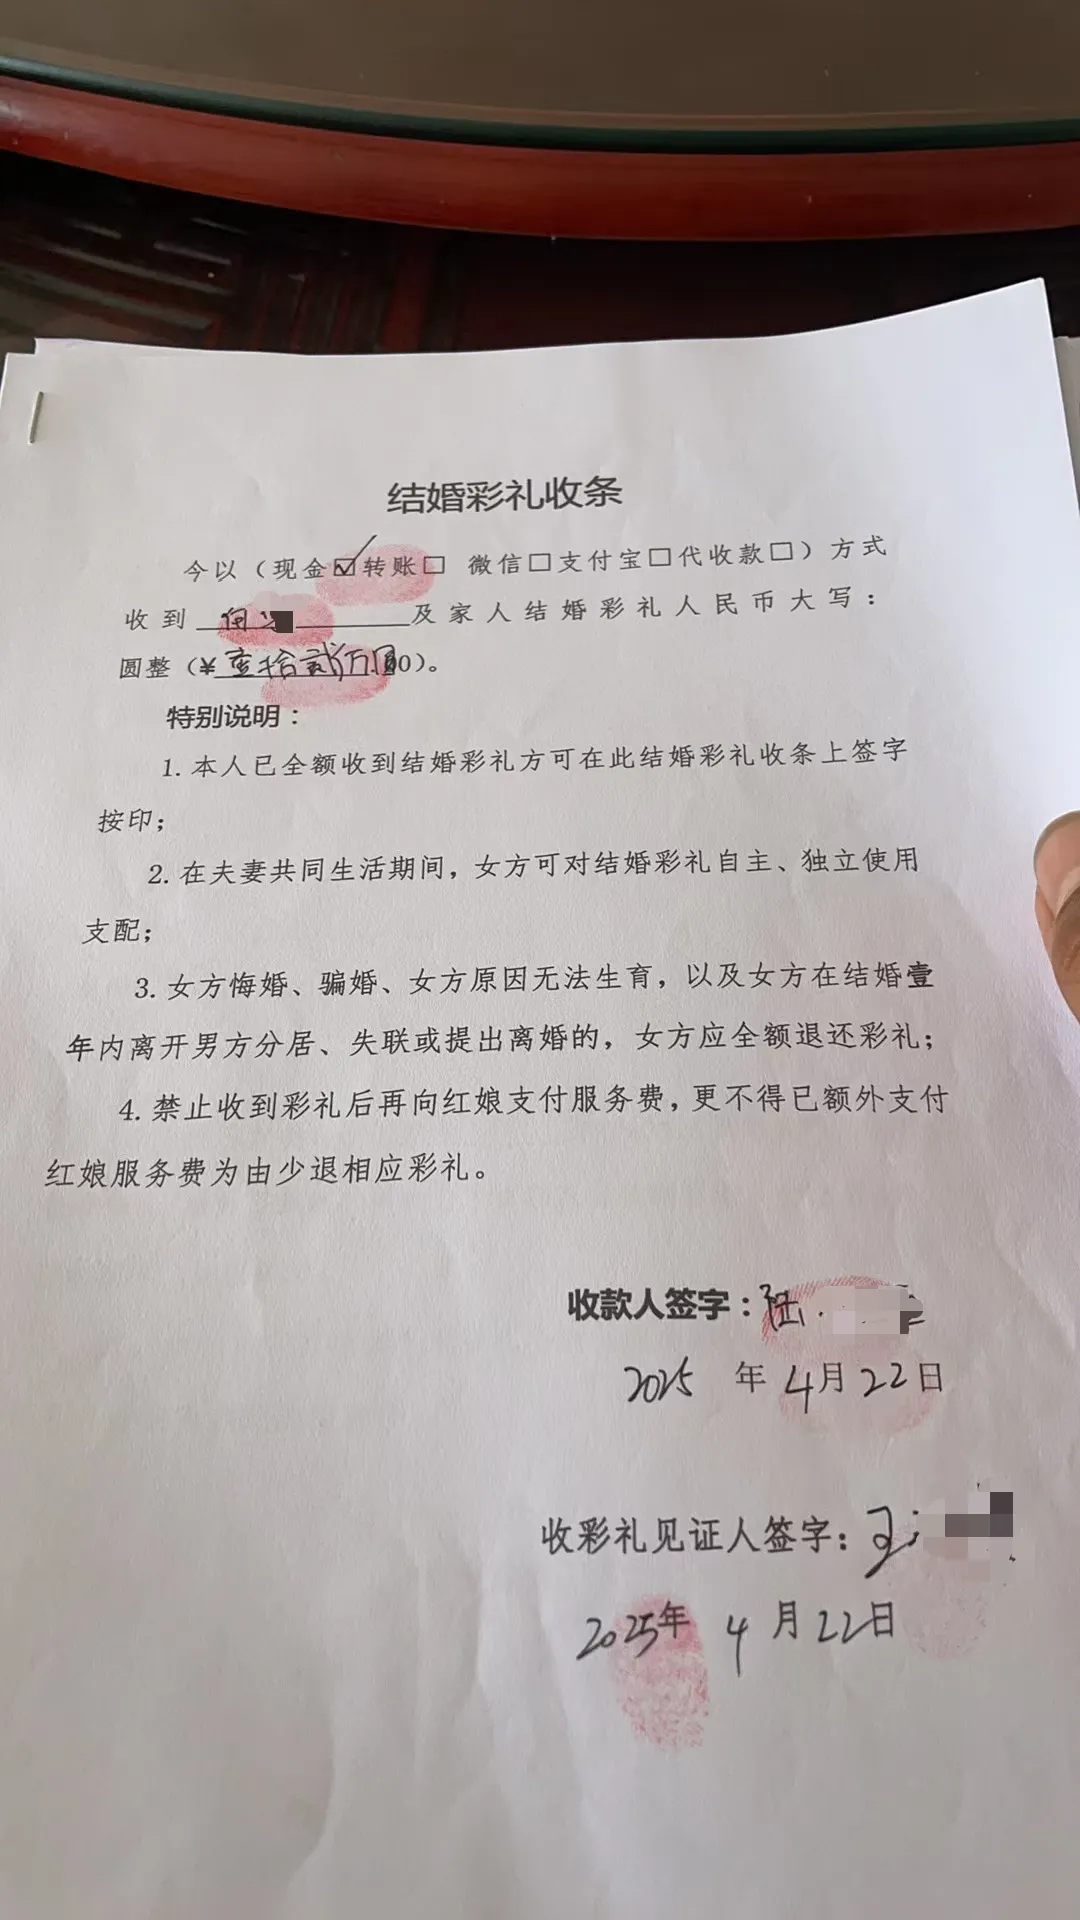 结婚彩礼收条
今以（现金☑转账□ 微信□支付宝□代收款□）方式
收到 何 及家人结婚彩礼人民币大写：
圆整（¥壹拾贰万圆00）。
特别说明：
1. 本人已全额收到结婚彩礼方可在此结婚彩礼收条上签字
按印；
2. 在夫妻共同生活期间，女方可对结婚彩礼自主、独立使用
支配；
3. 女方悔婚、骗婚、女方原因无法生育，以及女方在结婚壹
年内离开男方分居、失联或提出离婚的，女方应全额退还彩礼；
4. 禁止收到彩礼后再向红娘支付服务费，更不得已额外支付
红娘服务费为由少退相应彩礼。
收款人签字：陆
2025 年 4月22日
收彩礼见证人签字：王
2025年 4月22日